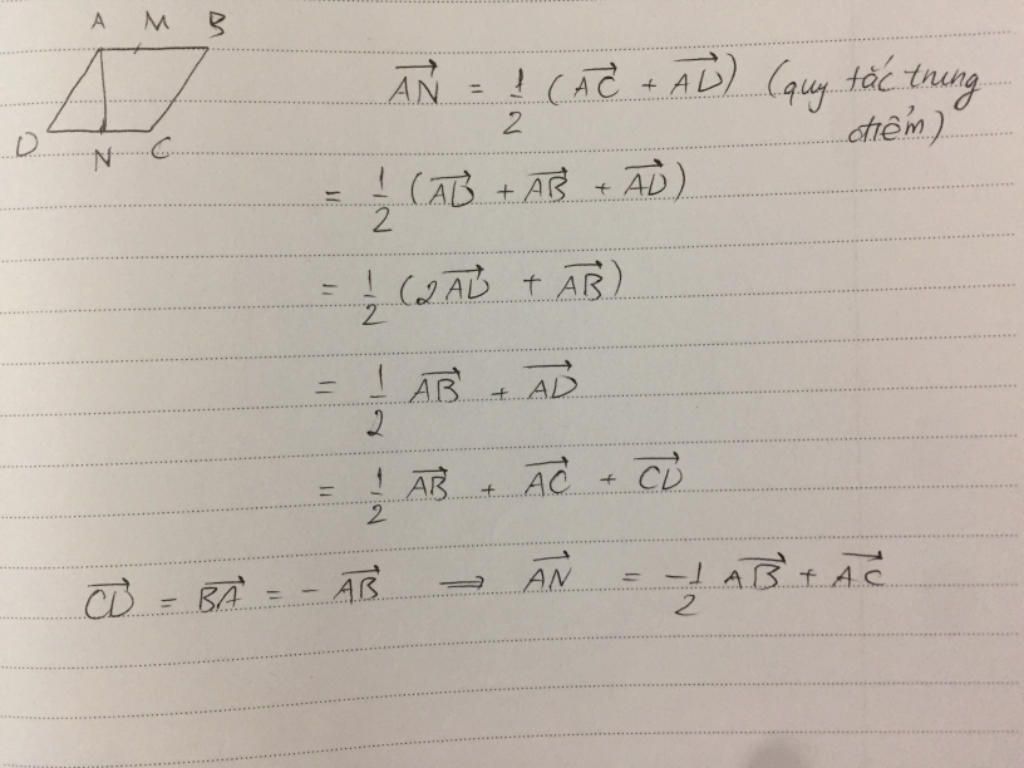 A M B
D N C
$\overrightarrow{AN} = \frac{1}{2} (\overrightarrow{AC} + \overrightarrow{AD})$ (quy tắc trung
điểm)
$= \frac{1}{2} (\overrightarrow{AD} + \overrightarrow{AB} + \overrightarrow{AD})$
$= \frac{1}{2} (2\overrightarrow{AD} + \overrightarrow{AB})$
$= \frac{1}{2} \overrightarrow{AB} + \overrightarrow{AD}$
$= \frac{1}{2} \overrightarrow{AB} + \overrightarrow{AC} + \overrightarrow{CD}$
$\overrightarrow{CD} = \overrightarrow{BA} = - \overrightarrow{AB} \implies \overrightarrow{AN} = \frac{-1}{2} \overrightarrow{AB} + \overrightarrow{AC}$